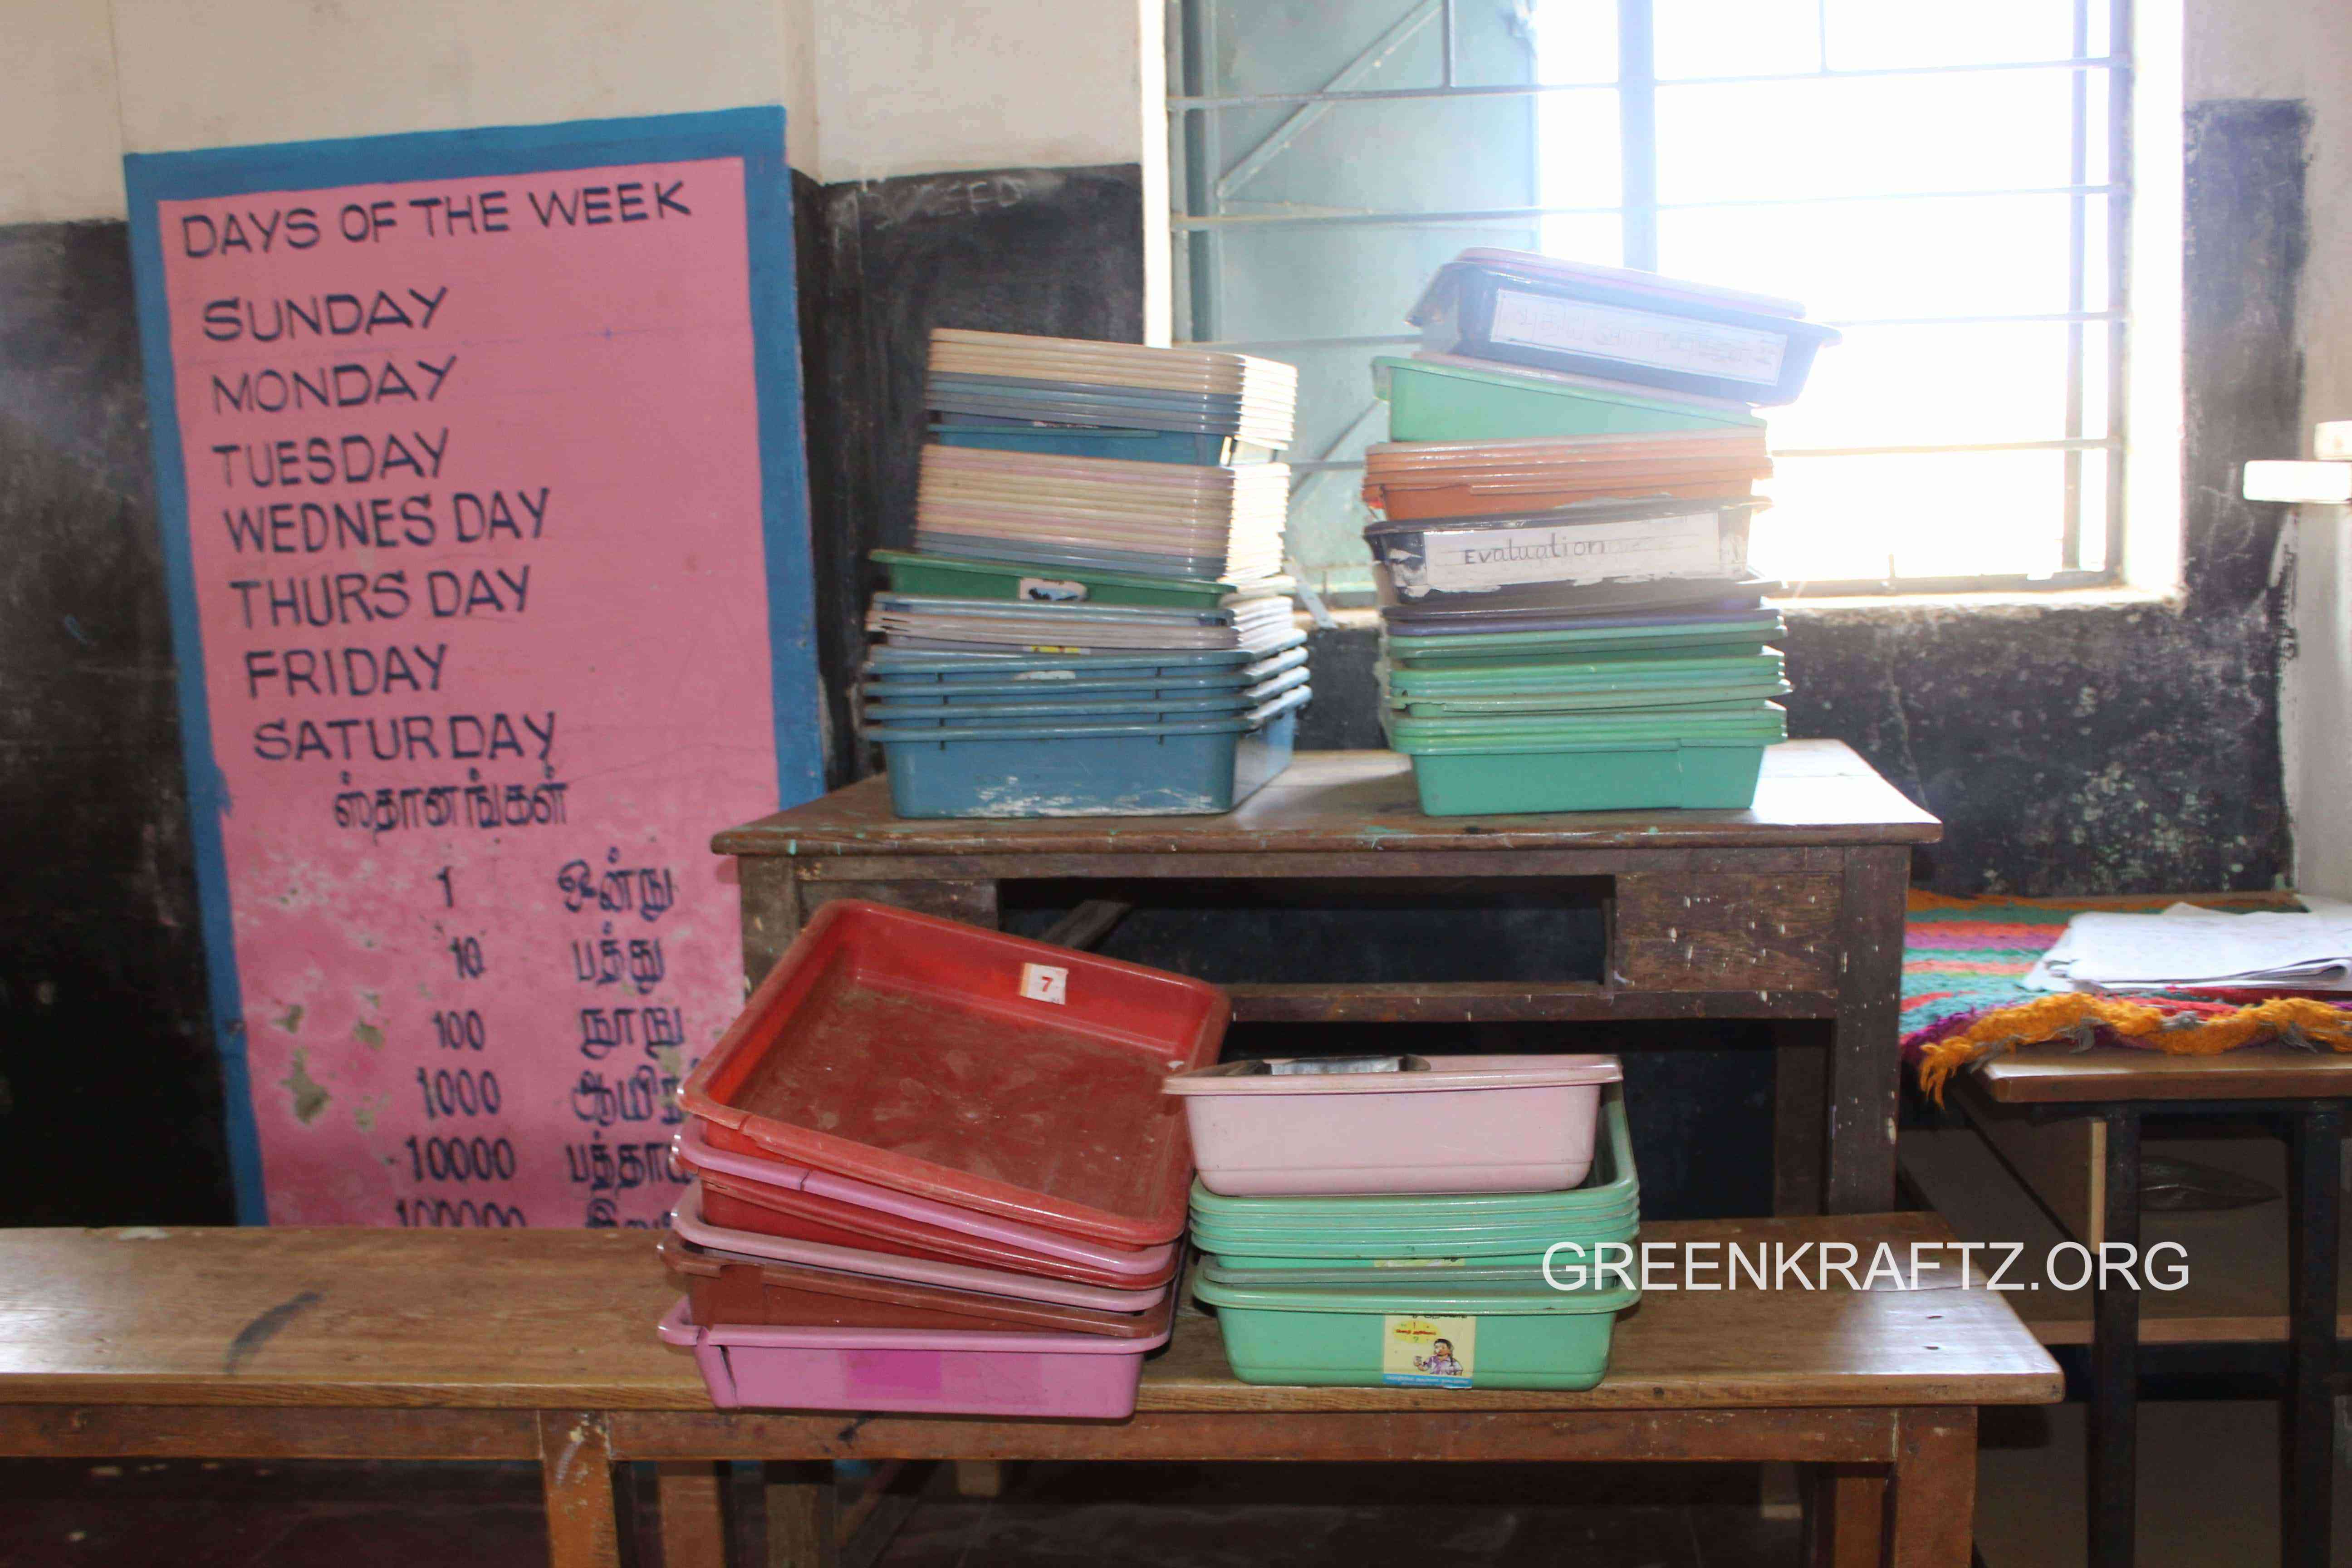 DAYS OF THE WEEK
SUNDAY
MONDAY
TUESDAY
WEDNES DAY
THURS DAY
FRIDAY
SATURDAY
ஸ்தானங்கள்
1 ஒன்று
10 பத்து
100 நூறு
1000
10000
100000
Evaluation
7
GREENKRAFTZ.ORG